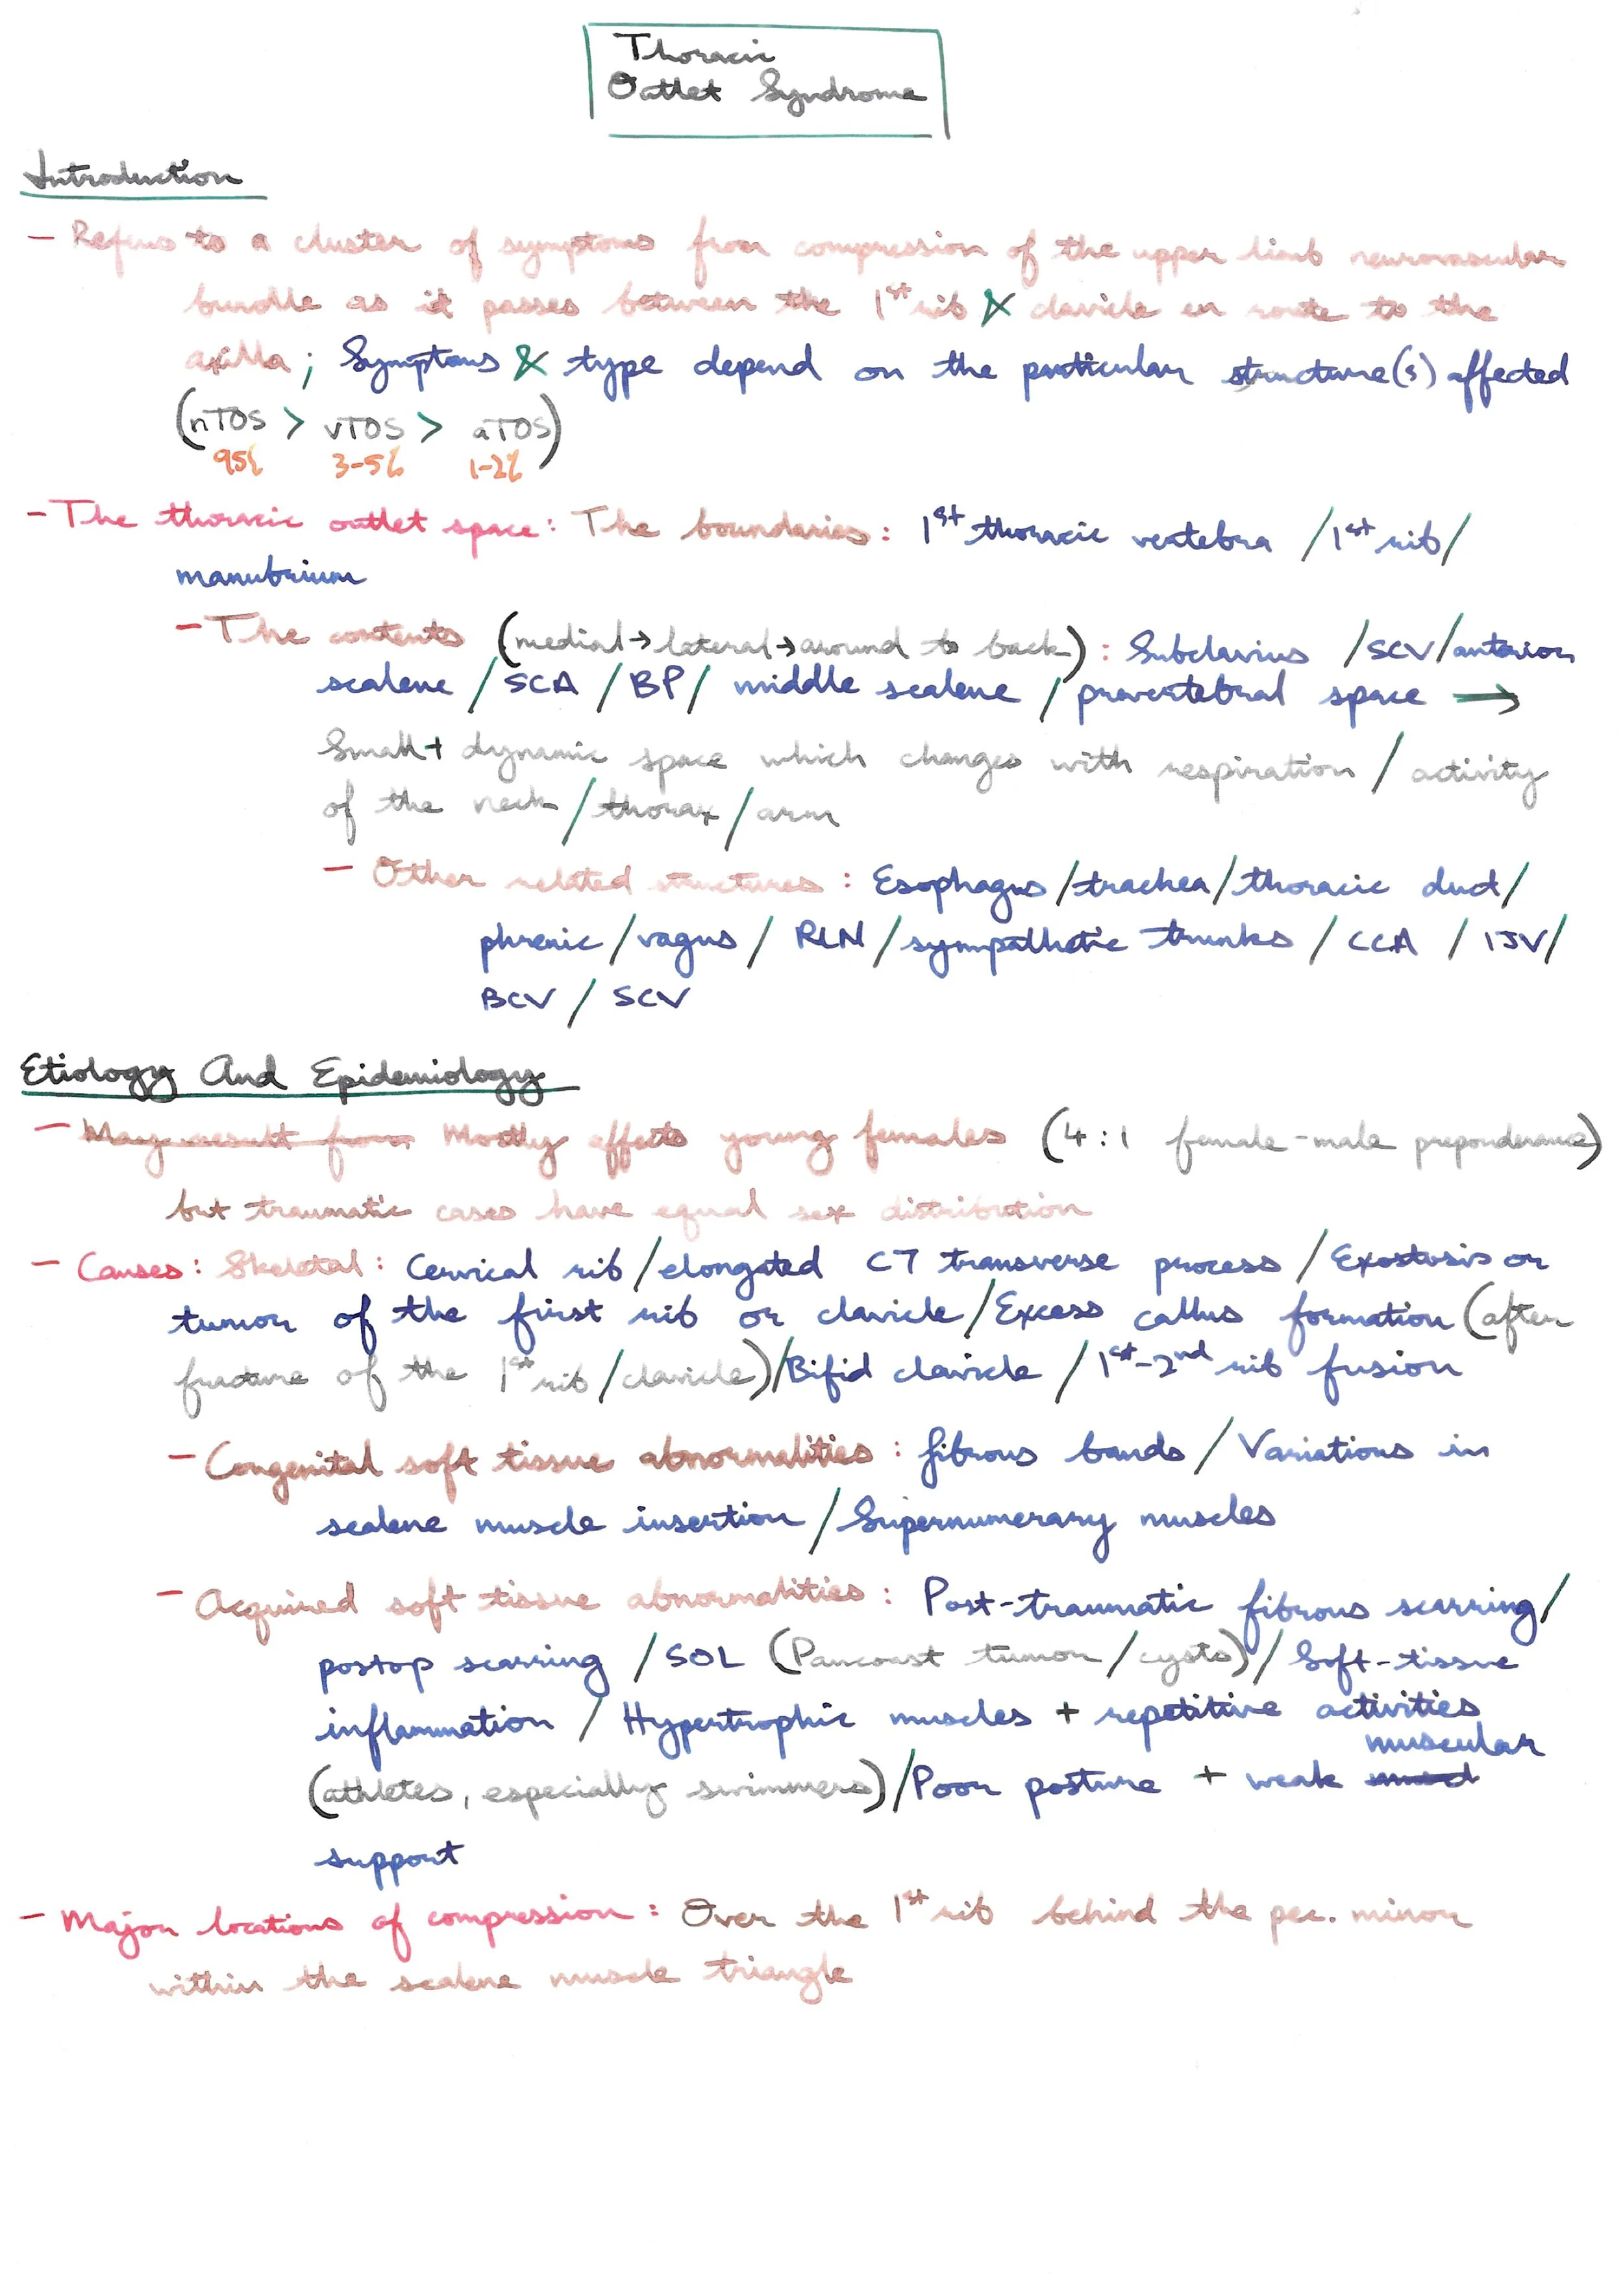 Thoracic
Outlet Syndrome
Introduction
- Refers to a cluster of symptoms from compression of the upper limb neurovascular
bundle as it passes between the 1st rib & clavicle en route to the
axilla; Symptoms & type depend on the particular structure(s) affected
(nTOS > vTOS > aTOS)
95% 3-5% 1-2%
- The thoracic outlet space: The boundaries: 1st thoracic vertebra / 1st rib/
manubrium
- The contents (medial→lateral→around to back): Subclavius / SCV/anterior
scalene / SCA / BP/ middle scalene / prevertebral space →
Small + dynamic space which changes with respiration / activity
of the neck / thorax / arm
- Other related structures: Esophagus/trachea/thoracic duct/
phrenic / vagus / RLN / sympathetic trunks / CCA / IJV/
BCV / SCV
Etiology And Epidemiology
- May result from Mostly affects young females (4:1 female-male preponderance)
but traumatic cases have equal sex distribution
- Causes: Skeletal: Cervical rib/elongated C7 transverse process / Exostosis or
tumor of the first rib or clavicle/Excess callus formation (after
fracture of the 1st rib/clavicle)/Bifid clavicle / 1st-2nd rib fusion
- Congenital soft tissue abnormalities: fibrous bands / Variations in
scalene muscle insertion / Supernumerary muscles
- Acquired soft tissue abnormalities: Post-traumatic fibrous scarring/
postop scarring / SOL (Pancoast tumor / cysts)/ Soft-tissue
inflammation / Hypertrophic muscles + repetitive activities
(athletes, especially swimmers)/Poor posture + weak muscular
support
- Major locations of compression: Over the 1st rib behind the pec. minor
within the scalene muscle triangle